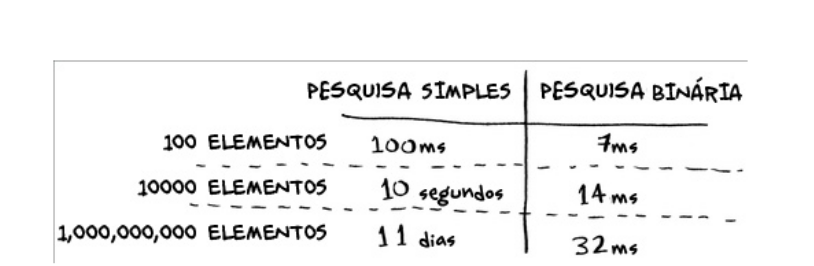 PESQUISA SIMPLES PESQUISA BINÁRIA
100 ELEMENTOS 100ms 7ms
10000 ELEMENTOS 10 segundos 14ms
1,000,000,000 ELEMENTOS 11 dias 32ms